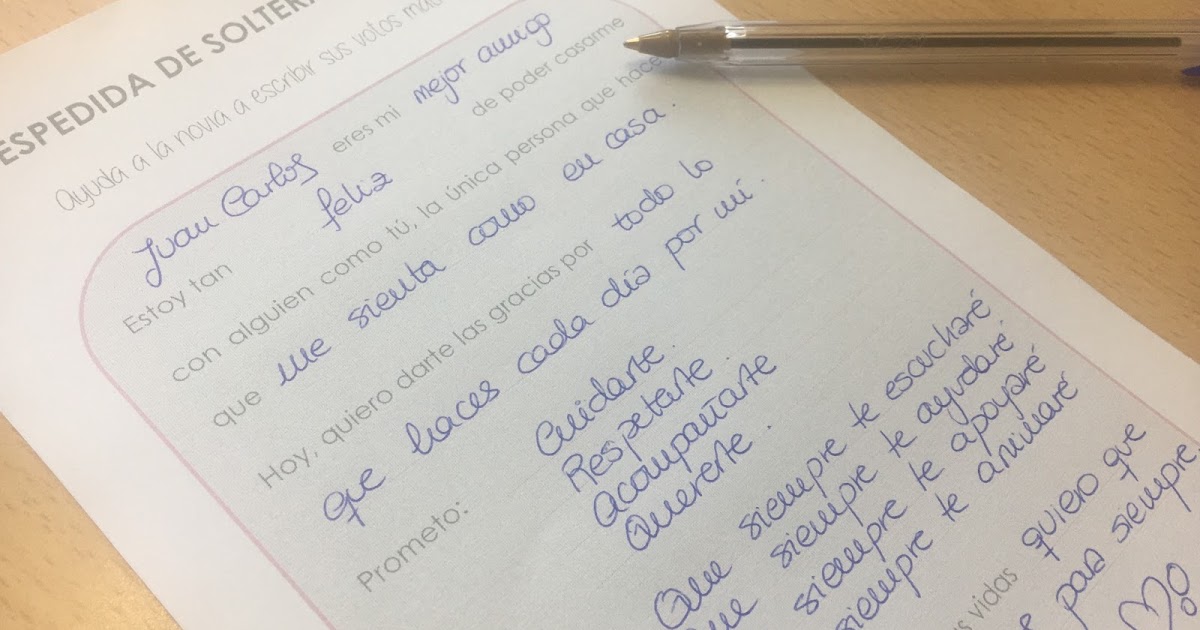 ESPEDIDA DE SOLTER
Ayuda a la novia a escribir sus votos más
Juan Carlos eres mi mejor amigo
Estoy tan feliz de poder casarme
con alguien como tú, la única persona que hace
que me sienta como en casa.
Hoy, quiero darte las gracias por todo lo
que haces cada día por mí.
Prometo: Cuidarte.
Respetarte.
Acompañarte
Quererte.
Que siempre te escucharé
siempre te ayudaré
siempre te apoyaré
siempre te animaré
vidas quiero que
para siempre